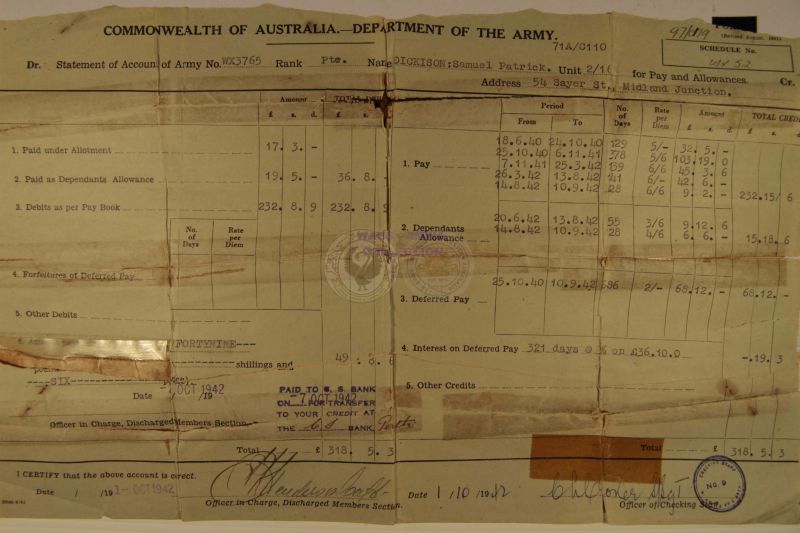 97/1719
(Revised August, 1941)
COMMONWEALTH OF AUSTRALIA.—DEPARTMENT OF THE ARMY.
71A/C110
SCHEDULE No.
Dr. Statement of Account of Army No. WX3765 Rank Pte. Name DICKISON; Samuel Patrick. Unit 2/16 for Pay and Allowances. Cr.
Address 54 Sayer St., Midland Junction.
Amount
£ s. d. £ s. d.
1. Paid under Allotment 17. 3. -
2. Paid as Dependants Allowance 19. 5. - 36. 8. -
3. Debits as per Pay Book 232. 8. 9 232. 8. 9
No. of Days Rate per Diem
4. Forfeitures of Deferred Pay
5. Other Debits
FORTYNINE---
shillings and 49. 8. 6
---SIX---
Date 7 OCT 1942 /19
PAID TO C. S. BANK
ON 7 OCT 1942 FOR TRANSFER
TO YOUR CREDIT AT
THE C S BANK Perth
Officer in Charge, Discharged Members Section.
Total £ 318. 5. 3
I CERTIFY that the above account is correct.
Date / /19 1- OCT 1942
Officer in Charge, Discharged Members Section.
Period No. of Days Rate per Diem Amount TOTAL CREDITS
From To £ s. d. £ s. d.
1. Pay
18.6.40 24.10.40 129 5/- 32. 5. -
25.10.40 6.11.41 378 5/6 103.19. 0
7.11.41 25.3.42 139 6/6 45. 3. 6
26.3.42 13.8.42 141 6/- 42. 6. -
14.8.42 10.9.42 28 6/6 9. 2. - 232.15/ 6
2. Dependants Allowance
20.6.42 13.8.42 55 3/6 9.12. 6
14.8.42 10.9.42 28 4/6 6. 6. - 15.18. 6
3. Deferred Pay 25.10.40 10.9.42 686 2/- 68.12. - 68.12. -
4. Interest on Deferred Pay 321 days @ % on £36.10.0 -.19. 3
5. Other Credits
Total £ 318. 5. 3
Date 1/10/1942
Officer of Checking Staff
CHECKING STAFF
No. 9